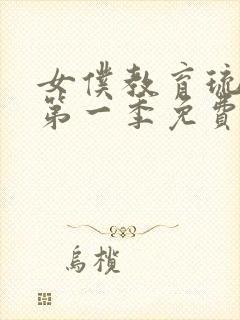 女僕教育琉
第一季免費
烏欖